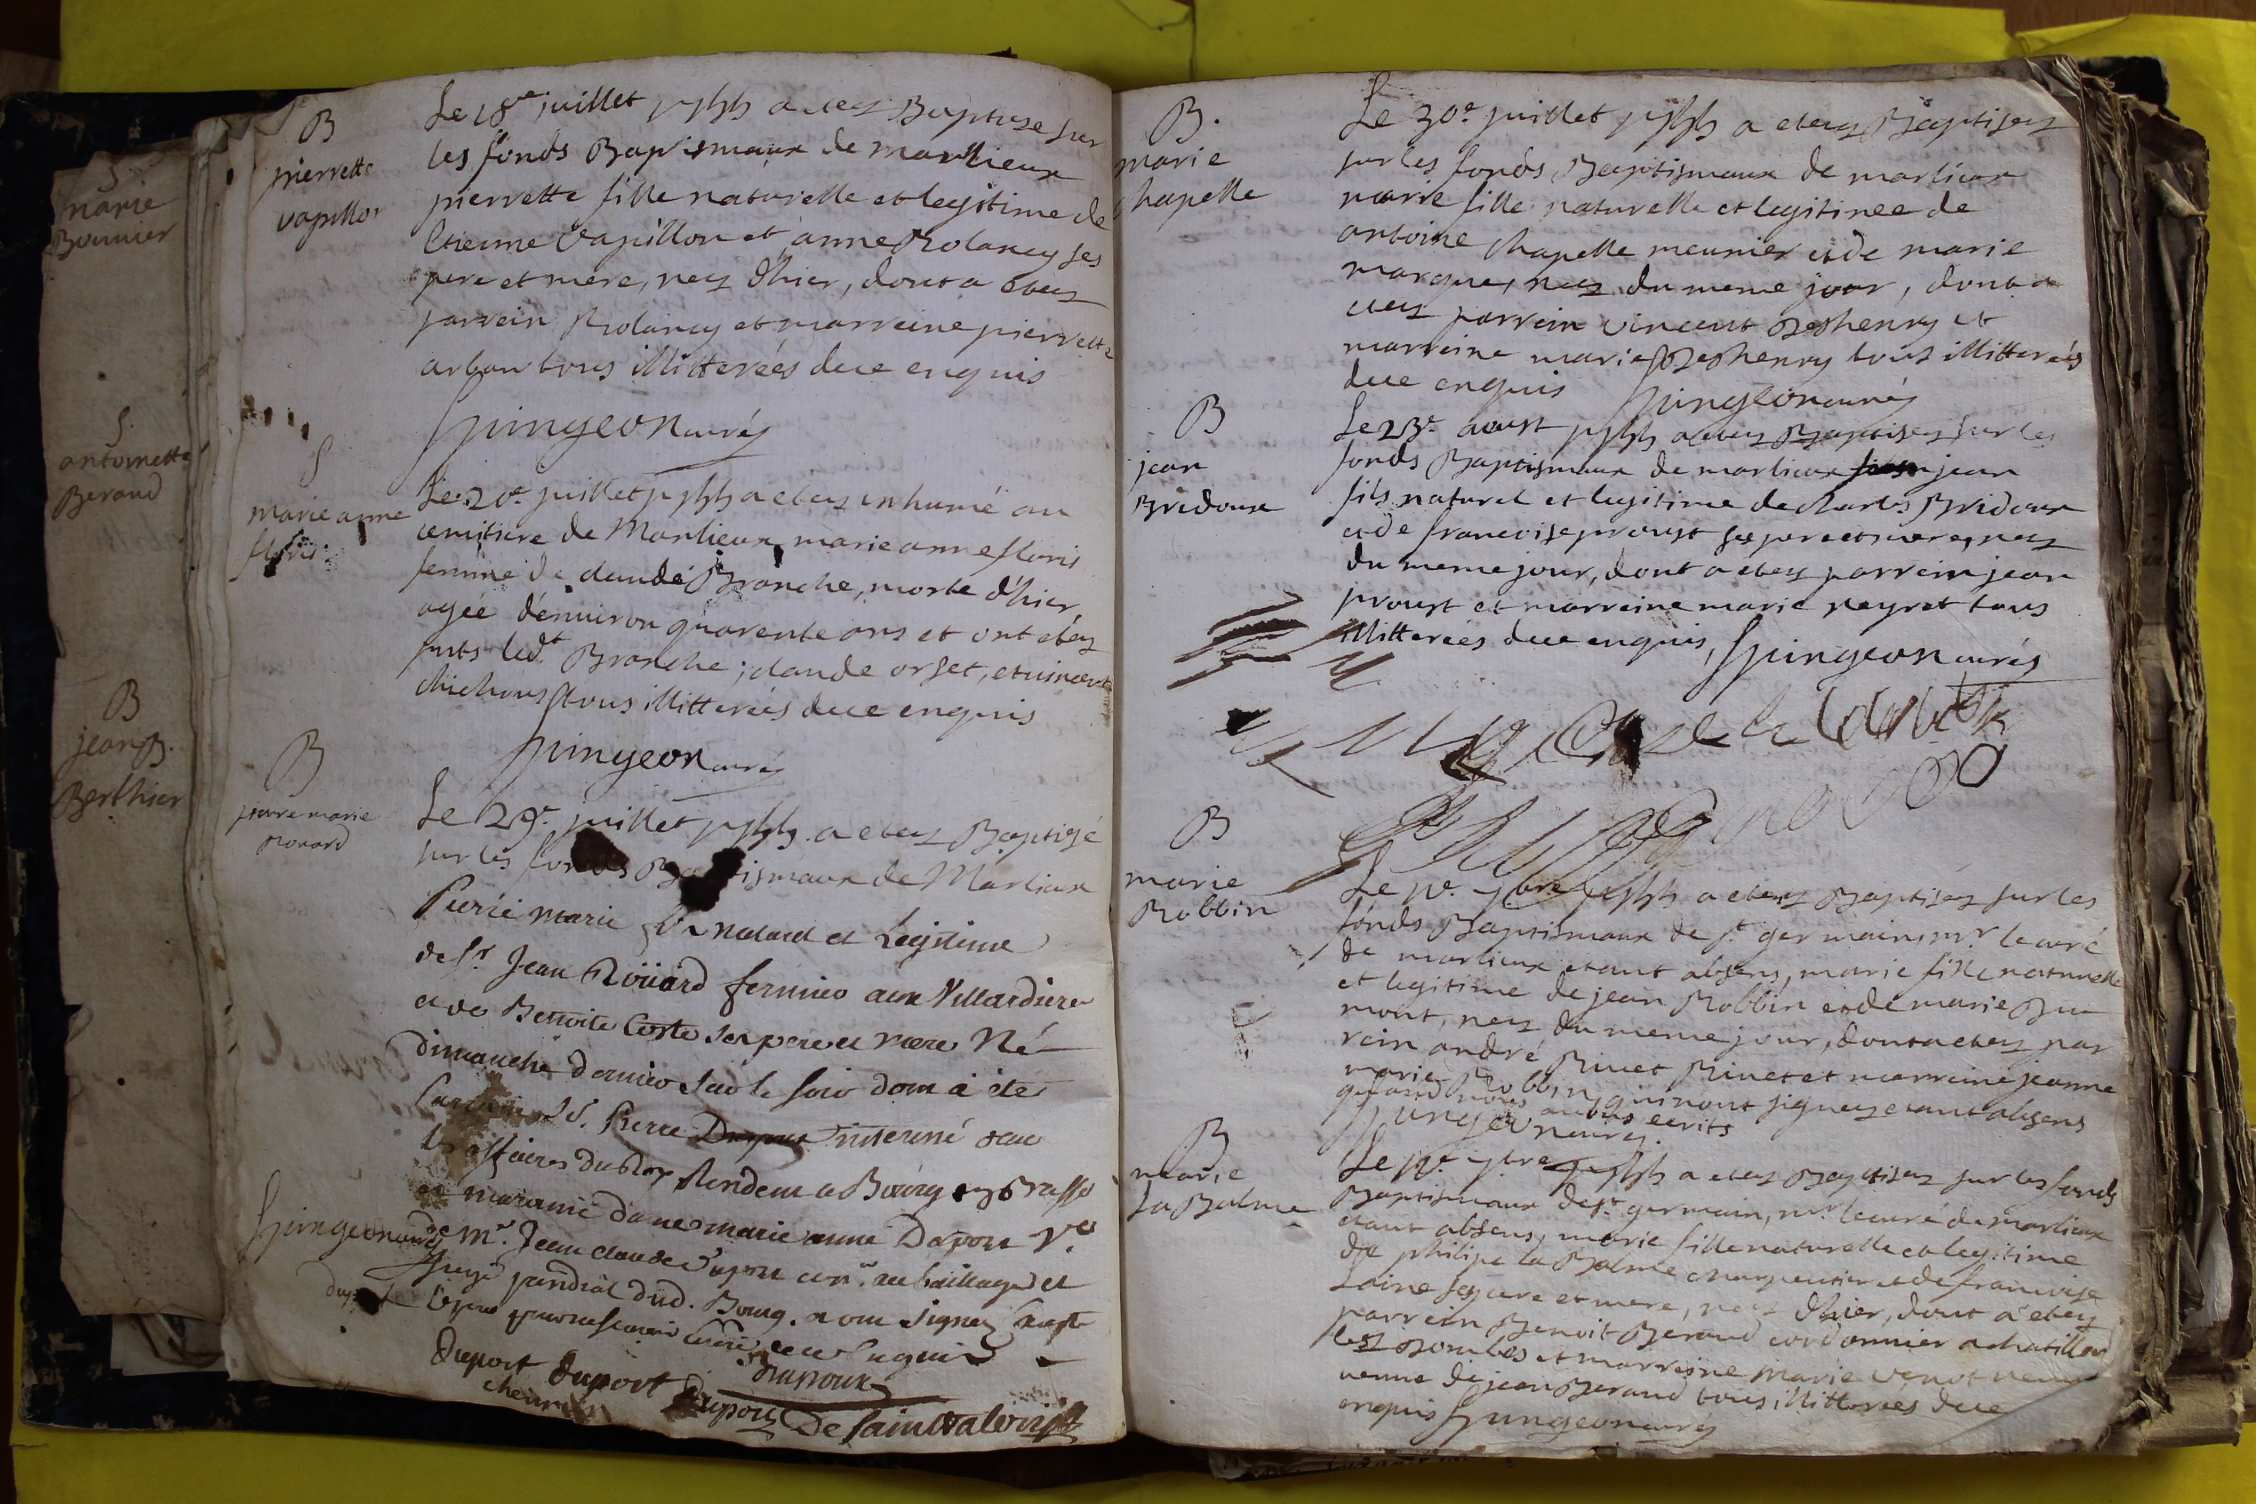 S.
marie
Bounier
S.
antoinette
Beraud
B
jean B.
Berthier
B
pierrette
vapillon
Le 18e juillet a etez Baptise sur
les fonds Baptismaux de marlieux
pierrette fille naturelle et legitime de
Etienne Vapillon et anne Rolancy ses
pere et mere, nez d'hier, dont a etez
parrein Rolancy et marreine pierrette
arban tous illitterées de ce enquis
Spingeon curéz
S
marie anne
floris
Le 20e juillet a etez inhumé au
cemitiere de Marlieux marie anne floris
femme de claude Branche, morte d'hier
agée d'environ quarente ans et ont etez
pnts ledt Branche ; claude orset, et vincent
chichoux tous illitterées de ce enquis
Spingeon curéz
B
pierre marie
Rouard
Le 29e juillet a etez Baptisé
sur les fonds Baptismaux de Marlieux
Pierre Marie fils naturel et Legitime
de Sr Jean Roüard fermier aux Villardieres
et de Benoite Coste ses pere et mere Né
dimanche dernier sur le soir dont à été
parrein Sr. Pierre Duport interessé dans
les affaires du Roy Residant a Bourg en Bresse
et maraine dame marie anne Duport Ve
de Mr. Jean claude Duport conr. au bailliage et
siege presidial dud. Bourg. n ont signez
le pere de ce enquis
Spingeon curéz
duport duport Dupouz
Duport De Saint Valerin
B.
marie
Chapelle
Le 30e. juillet a etez Baptisez
sur les fonds Baptismaux de marlieux
marie fille naturelle et legitimee de
antoine Chapelle meunier et de marie
marque, nez du meme jour, dont a
etez parrein vincent Beshenry et
marreine marie Beshenry tous illitterées
de ce enquis Spingeon curéz
B
jean
Bridoux
Le 23e. aoust a etez Baptisez sur les
fonds Baptismaux de marlieux jean
fils naturel et legitime de charles Bridoux
et de francoise proust ses pere et mere, nez
du meme jour, dont a etez parrein jean
proust et marreine marie peyret tous
illitterées de ce enquis, Spingeon curéz
B
marie
Robbin
Le 7bre a etez Baptisez sur les
fonds Baptismaux de st germain, mr. le curé
de marlieux etant absens, marie fille naturelle
et legitime de jean Robbin et de marie Bu
mont, nez du meme jour, dont a etez par
rein andré Rivet Rivet et marreine jeanne
marie Robbin qui n'ont signez etant absens
quand nous avons ecrits
Spingeon curéz.
B
marie
La Balme
Le 7bre a etez Baptisez sur les fonds
Baptismaux de st. germain, mr. le curé de marlieux
etant absens, marie fille naturelle et legitime
de philipe la Balme charpentier et de francoise
Laine ses pere et mere, nez d'hier, dont a etez
parrein Benoit Beraud cordonnier a chatillon
les Dombes et marreine marie venot veuve
veuve de jean Beraud tous illitterées de ce
enquis Spingeon curéz